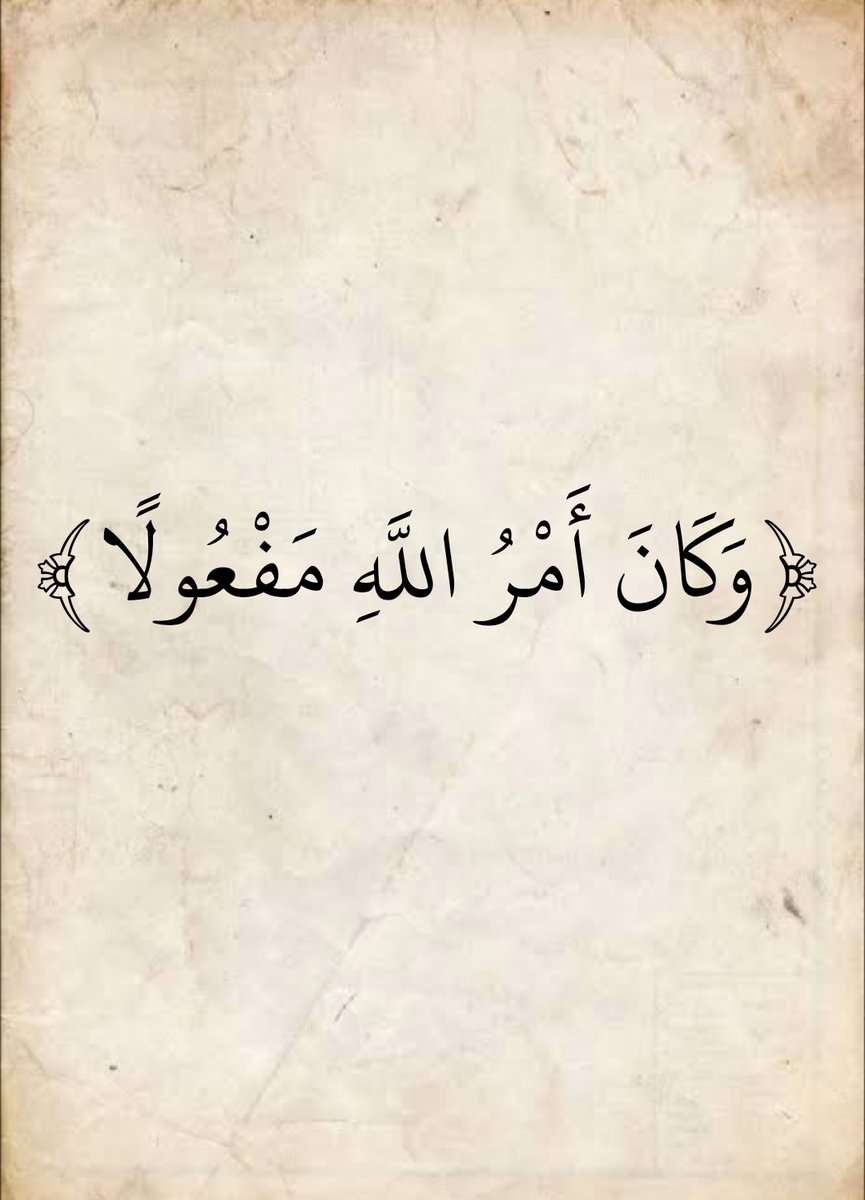 ﴿وَكَانَ أَمْرُ اللَّهِ مَفْعُولًا﴾